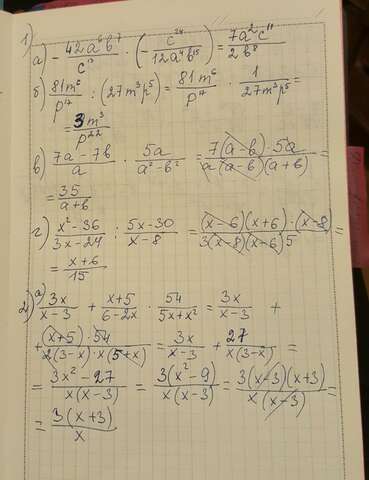 1)
а) - 42a⁶b⁷/c¹³ · (- c²⁴/12a⁴b¹⁵) = 7a²c¹¹/2b⁸
б) 81m⁶/p¹⁷ : (27m³p⁵) = 81m⁶/p¹⁷ · 1/27m³p⁵ =
= 3m³/p²²
в) 7a - 7b/a · 5a/a² - b² = 7(a - b) · 5a/a(a - b)(a + b) =
= 35/a+b
г) x² - 36/3x - 24 : 5x - 30/x - 8 = (x - 6)(x + 6) · (x - 8)/3(x - 8)(x - 6)5 =
= x + 6/15
2) а) 3x/x - 3 + x+5/6 - 2x · 54/5x + x² = 3x/x - 3 +
+ (x+5) · 54/2(3 - x) · x(5 + x) = 3x/x - 3 + 27/x(3 - x) =
= 3x² - 27/x(x - 3) = 3(x² - 9)/x(x - 3) = 3(x - 3)(x + 3)/x(x - 3) =
= 3(x + 3)/x